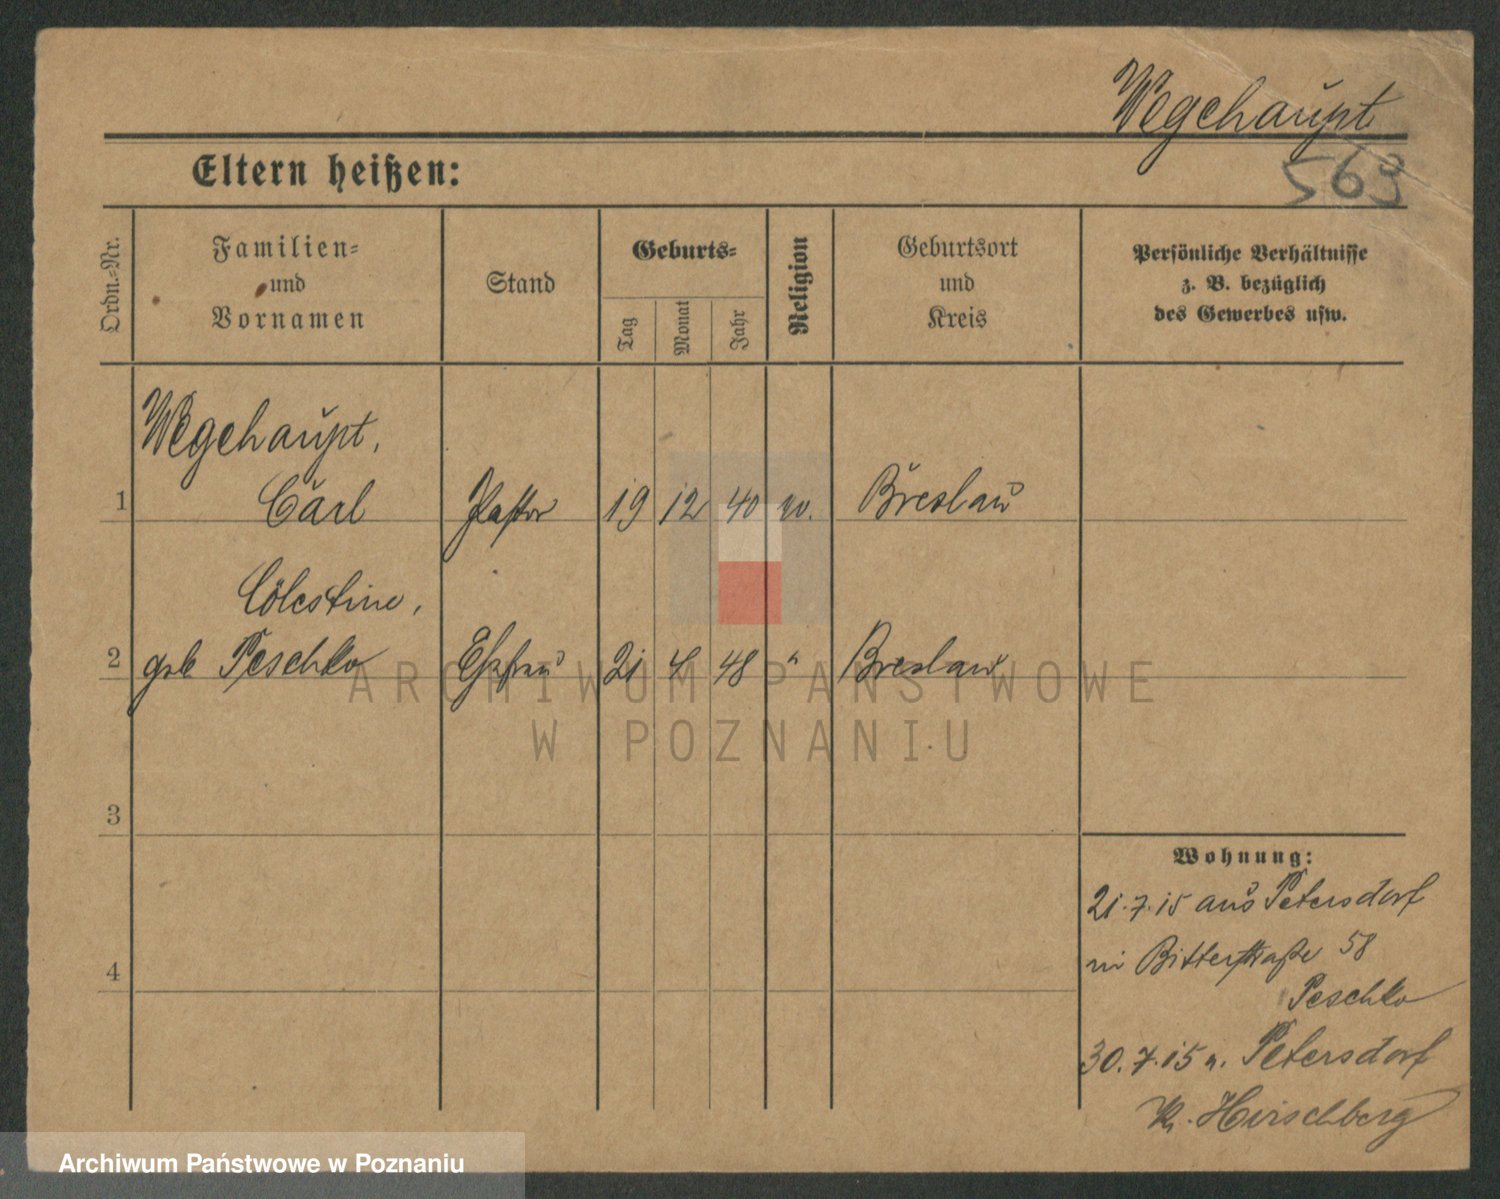 Wegehaupt
563
Eltern heißen:
Ordn.-Nr.
Familien-
und
Vornamen
Stand
Geburts-
Tag
Monat
Jahr
Religion
Geburtsort
und
Kreis
Persönliche Verhältnisse
z. B. bezüglich
des Gewerbes usw.
Wegehaupt,
1 Carl Pastor 19 12 40 Breslau
Cölestine,
2 geb Peschko Ehefrau 21 4 48 " Breslau
3
4
Wohnung:
21.7.15 aus Petersdorf
in Bitterstraße 58
Peschko
30.7.15 n. Petersdorf
Kr. Hirschberg
ARCHIWUM PAŃSTWOWE
W POZNANIU
Archiwum Państwowe w Poznaniu